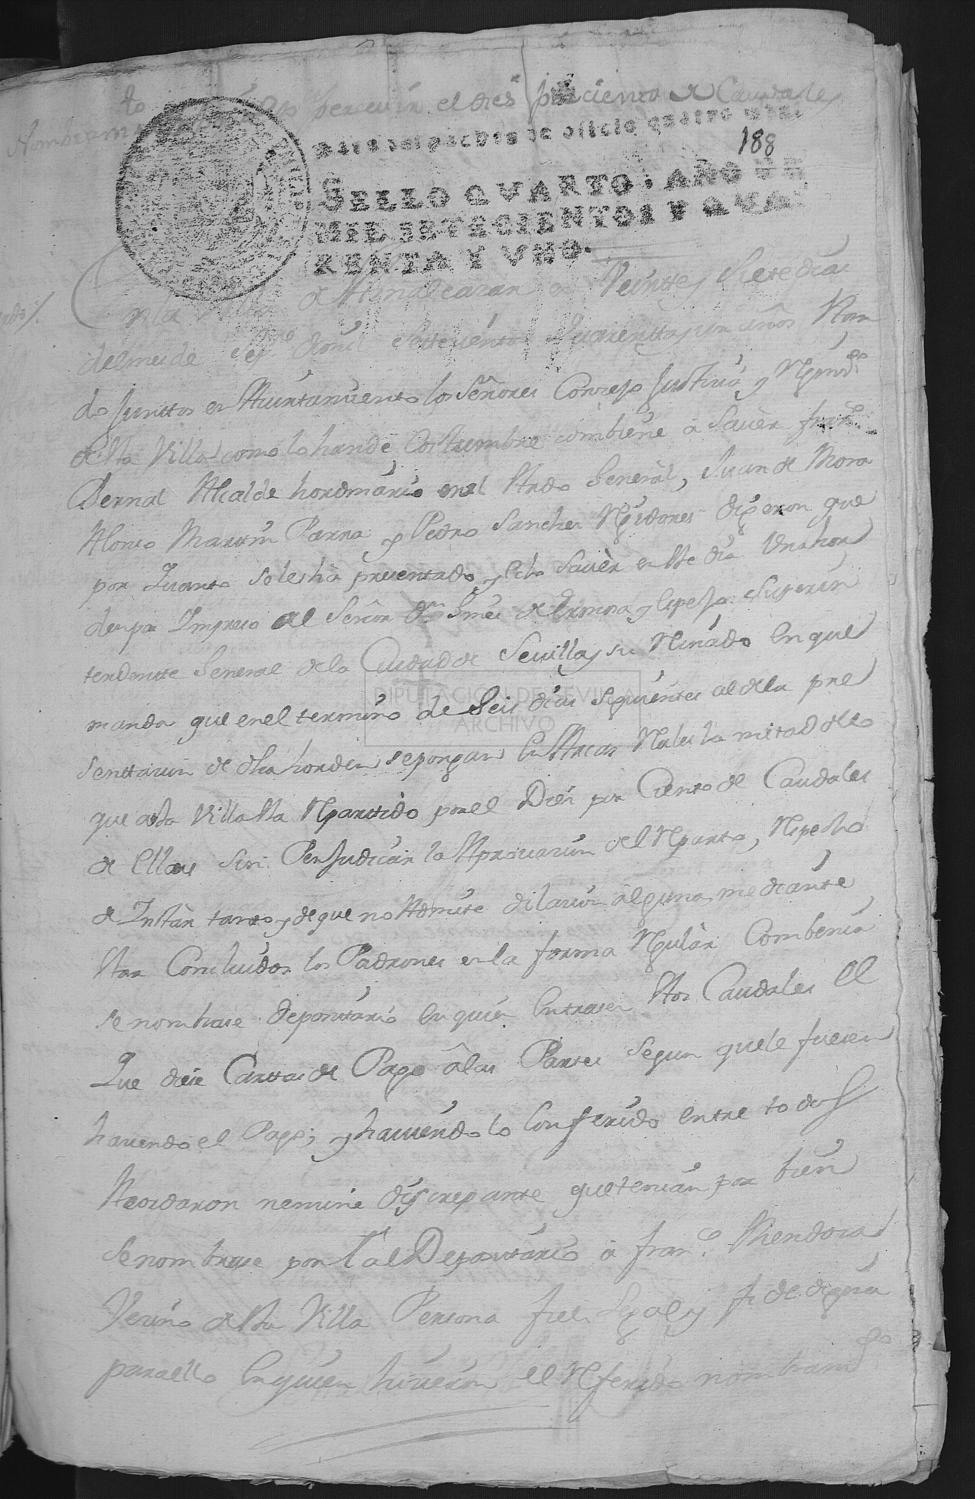 percevir el dies por ciento de Caudales
Nombram.to
Para despachos de oficio quatro mrs.
188
SELLO QVARTO, AÑO DE
MIL SETECIENTOS Y QVA
RENTA Y VNO.
En la Villa de Almalcazar en Veintte y siete dias
del mes de de mil settecientos Quarentta y un años Stan
do Junttos en Aiuntamiento los Señores Concejo Justicia y Rejimto
de sta Villa como lo han de Costumbre combiene à Saver fran.co
Bernal Alcalde hordinario en el stado General, Juan de Mora
Alonso Martin Parra y Pedro Sanches Rejidores dijeron que
por Quanto se les hà presentado y hecho Saver en ste dia Una horn
den por Impreso del Señor Dn Gines de Hermosa y Espejo Superin
tendente General de la Ciudad de Sevilla y su Reinado En que
DIPUTACION DE SEVILLA
ARCHIVO
manda que en el termino de Seis dias siguientes al de la pre
senttacion de dha horden se pongan En Arcas Reales la mitad de lo
que a sta Villa sta Repartido por el Diez por Ciento de Caudales
de Ellas sin Perjudicar la Aprovacion del Reparto, Respecto
de Instar tanto y de que no Admite dilacion alguna, mediante
star Concluidos los Padrones en la forma Regular Combenia
se nombrase depositario En quien Entrasen stos Caudales El
Que diese Carttas de Pago â las Partes segun que le fuesen
haciendo el Pago; y haviendolo Conferido entre todos
Acordaron nemine discrepante que tenian por bien
se nombrase por tal Depositario a fran.co Mendoza
Vecino de sta Villa Persona fiel Legal y fidedigna
para ello En quien hicieron el Referido nombram.to